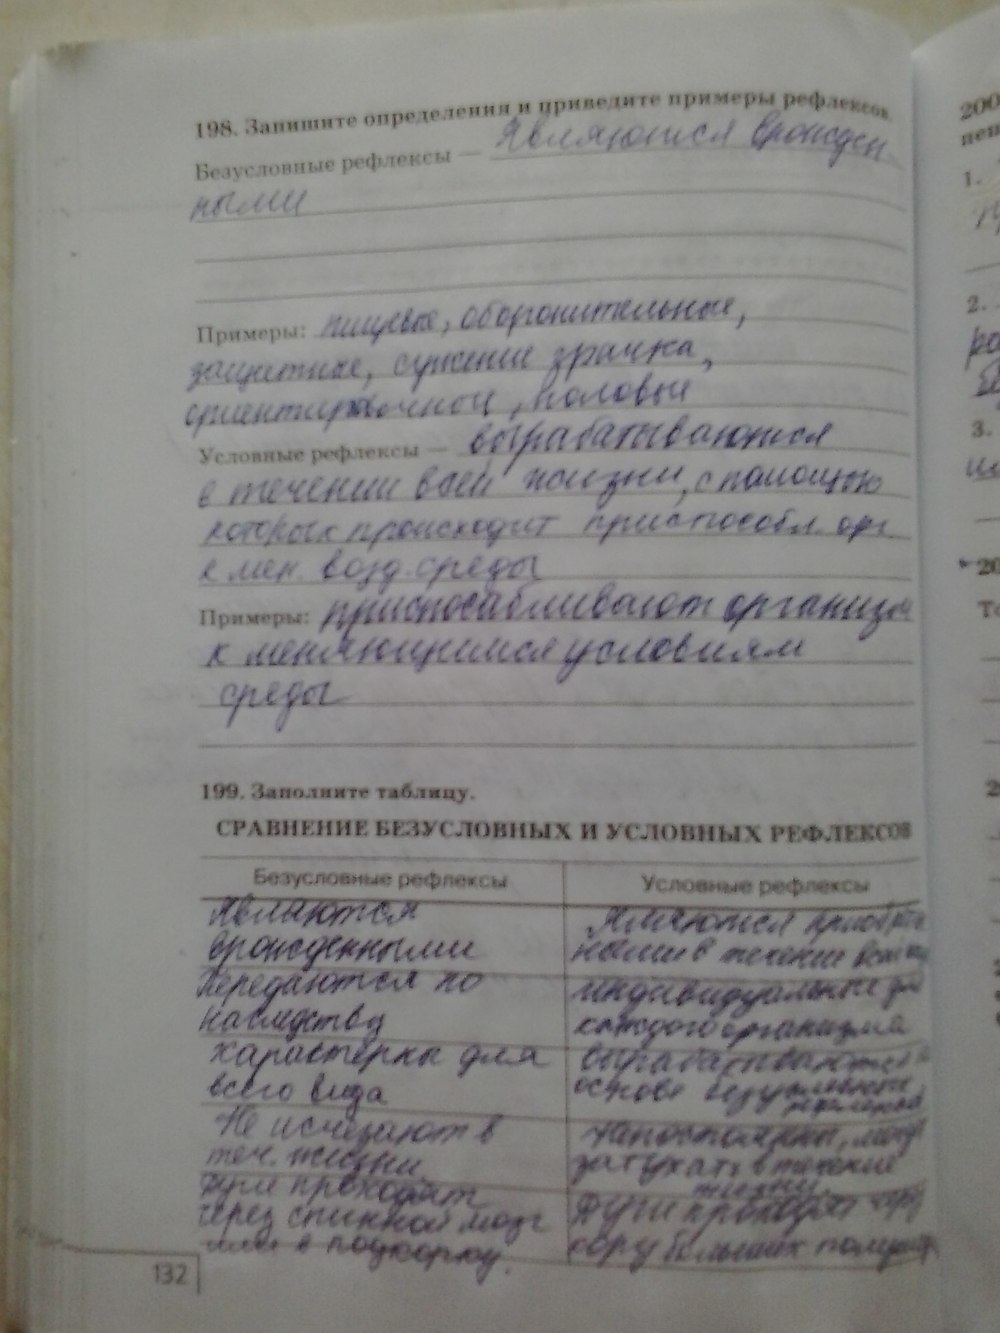 198. Запишите определения и приведите примеры рефлексов.
Безусловные рефлексы — Являются врожден
ными
Примеры: пищевые, оборонительные,
защитные, сужение зрачка,
ориентировочной, половые
Условные рефлексы — вырабатываются
в течении всей жизни, с помощью
которых происходит приспособл. орг.
к мен. возд. среды
Примеры: приспосабливают организм
к меняющимся условиям
среды
199. Заполните таблицу.
СРАВНЕНИЕ БЕЗУСЛОВНЫХ И УСЛОВНЫХ РЕФЛЕКСОВ
Безусловные рефлексы
Условные рефлексы
Являются
врожденными
Являются приобретен
ными в течение
Передаются по
наследству
индивидуальные для
каждого организма
характерны для
всего вида
вырабатываются
основе безусловных
рефлексов
Не исчезают в
теч. жизни
непостоянны, могут
затухать в течение
жизни
Дуги проходят
через спинной мозг
или в подкорку.
Дуги проходят через
кору больших полушар
132
200
1.
2.
3.
20